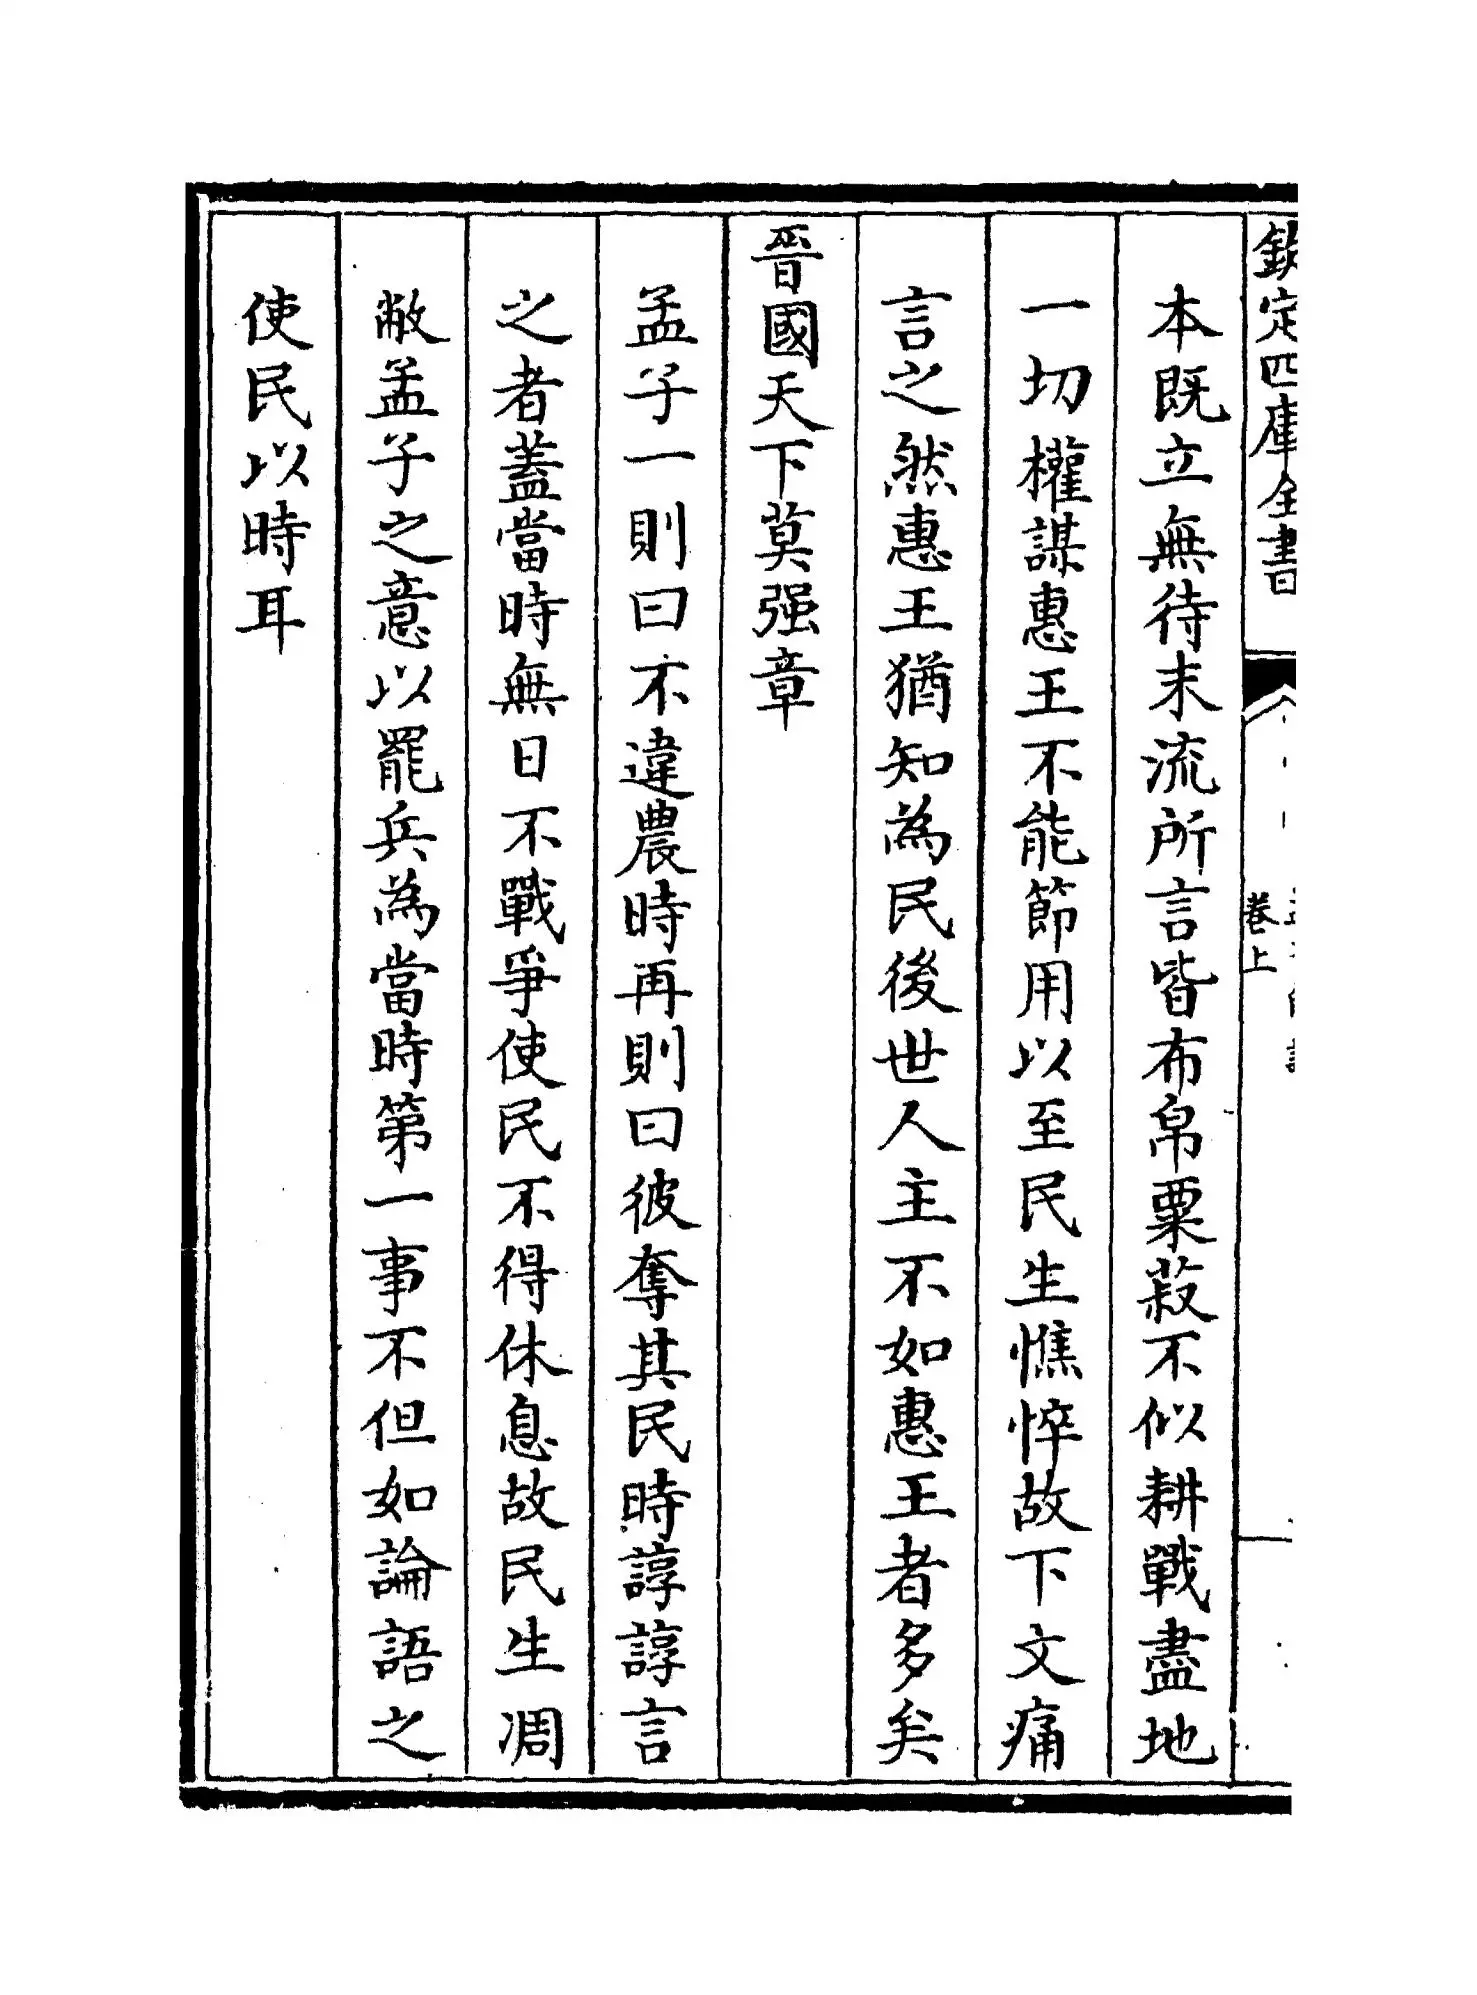 欽定四庫全書
卷上
本既立無待末流所言皆布帛粟菽不似耕戰盡地
一切權謀惠王不能節用以至民生憔悴故下文痛
言之然惠王猶知為民後世人主不如惠王者多矣
晉國天下莫强章
孟子一則曰不違農時再則曰彼奪其民時諄諄言
之者蓋當時無日不戰爭使民不得休息故民生凋
敝孟子之意以罷兵為當時第一事不但如論語之
使民以時耳